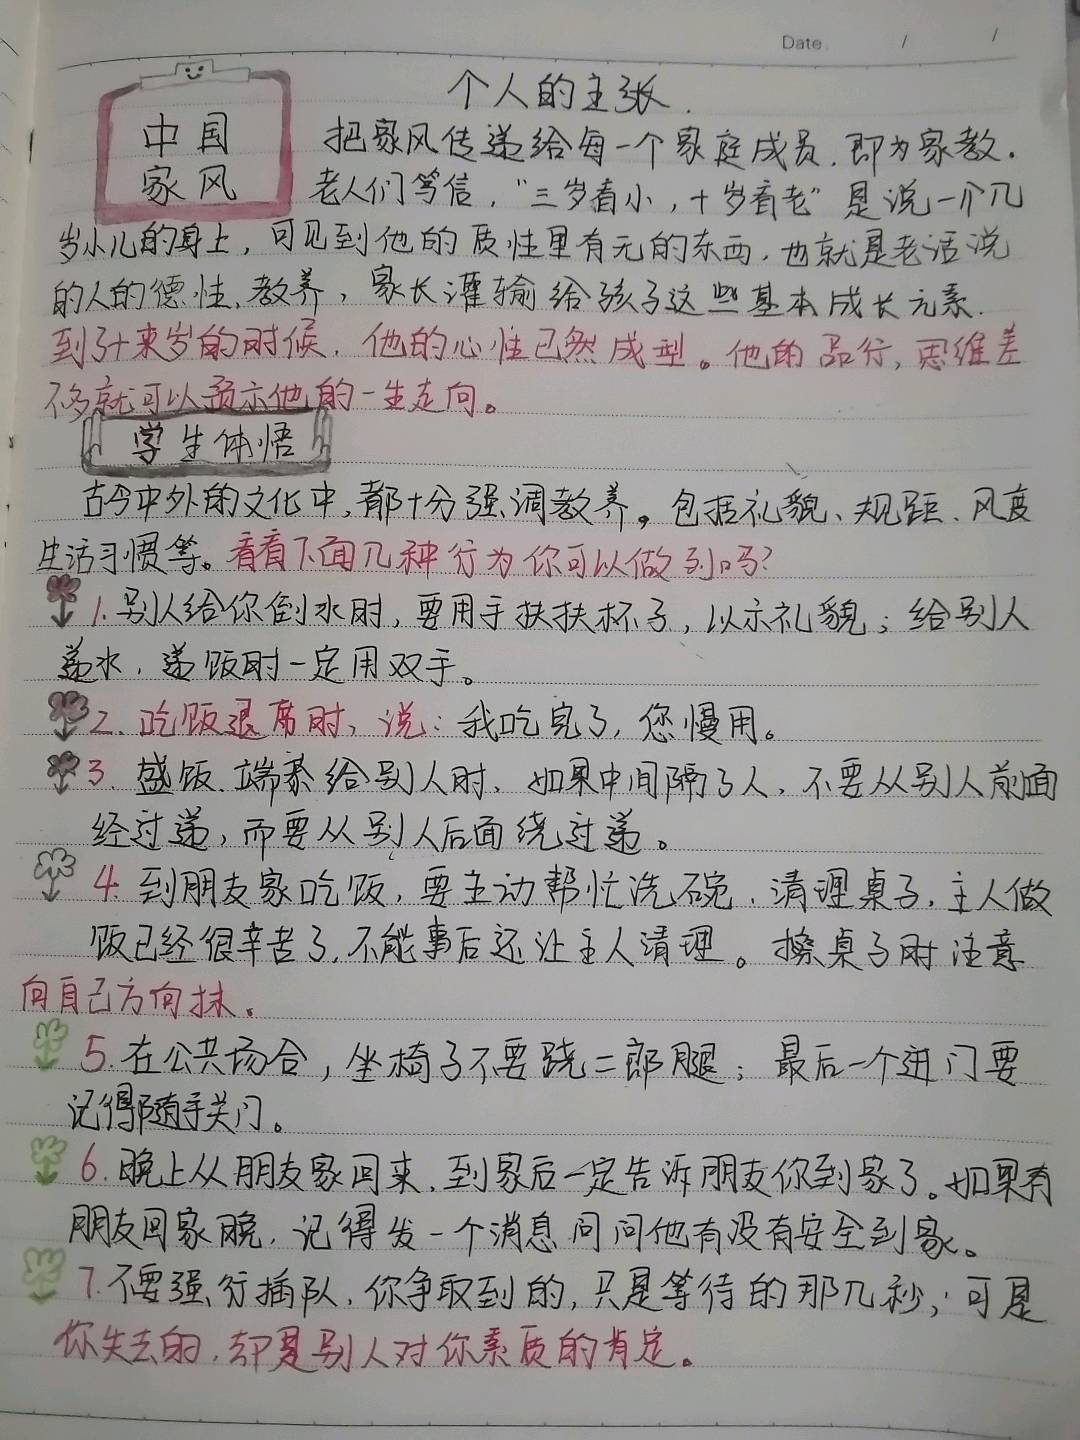 Date / /
个人的主张.
中国
家风
把家风传递给每一个家庭成员,即为家教。
老人们笃信,“三岁看小,十岁看老”是说一个几
岁小儿的身上,可见到他的质性里有无的东西,也就是老话说
的人的德性、教养,家长灌输给孩子这些基本成长元素.
到了十来岁的时候,他的心性已然成型。他的品行,思维差
不多就可以预示他的一生走向。
学生体悟
古今中外的文化中,都十分强调教养。包括礼貌、规距、风度
生活习惯等。看看下面几种行为你可以做到吗?
1.别人给你倒水时,要用手扶扶杯子,以示礼貌;给别人
递水,递饭时一定用双手。
2.吃饭退席时,说:我吃完了,您慢用。
3.盛饭、端茶给别人时,如果中间隔了人,不要从别人前面
经过递,而要从别人后面绕过递。
4.到朋友家吃饭,要主动帮忙洗碗、清理桌子,主人做
饭已经很辛苦了,不能事后还让主人清理。擦桌子时注意
向自己方向抹。
5.在公共场合,坐椅子不要跷二郎腿;最后一个进门要
记得随手关门。
6.晚上从朋友家回来,到家后一定告诉朋友你到家了。如果有
朋友回家晚,记得发一个消息问问他有没有安全到家。
7.不要强行插队,你争取到的,只是等待的那几秒;可是
你失去的,却是别人对你素质的肯定。